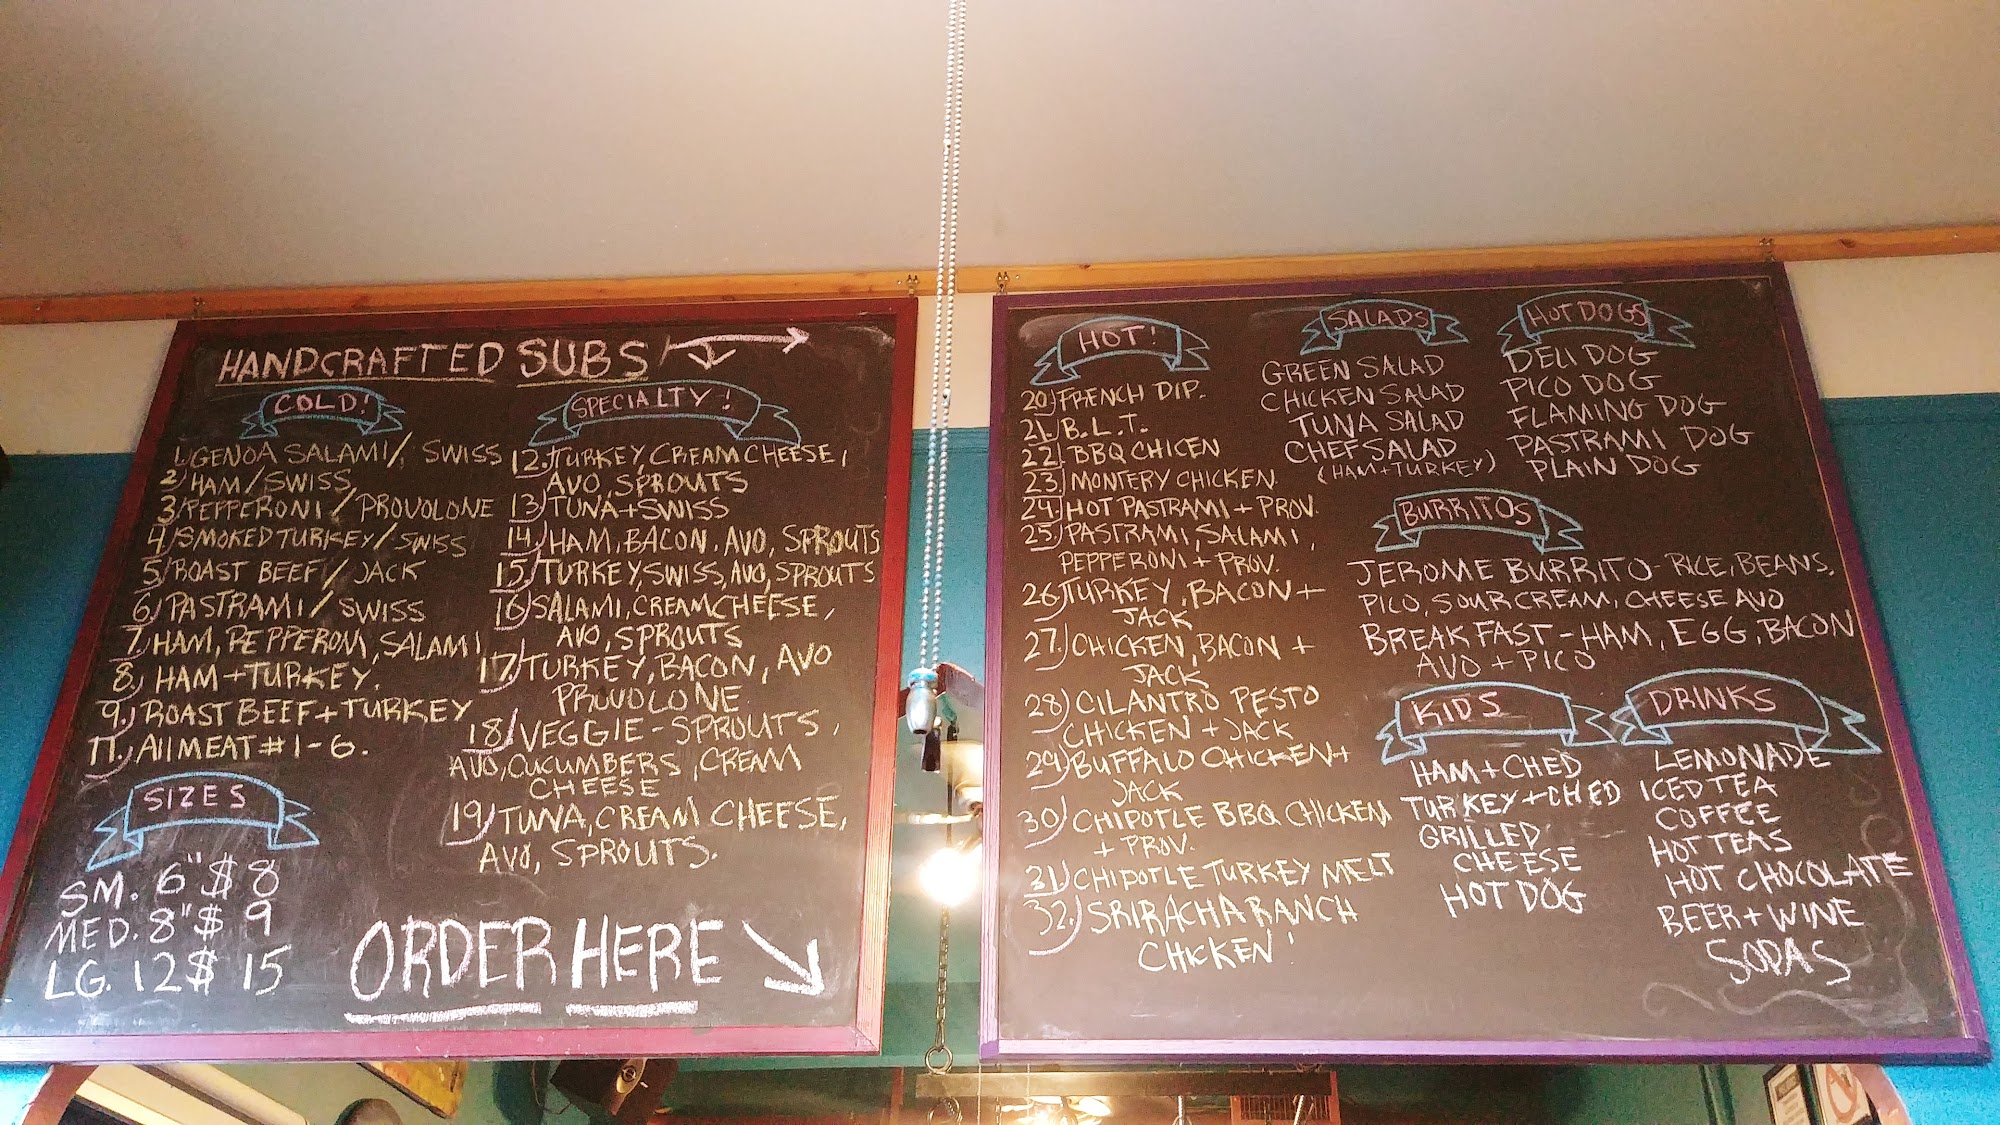 HANDCRAFTED SUBS
COLD!
1. GENOA SALAMI/ SWISS
2) HAM/SWISS
3) PEPPERONI/PROVOLONE
4) SMOKED TURKEY/SWISS
5) ROAST BEEF/ JACK
6) PASTRAMI/ SWISS
7) HAM, PEPPERONI, SALAMI
8) HAM+TURKEY.
9.) ROAST BEEF+TURKEY
11.) All MEAT #1-6.
SIZES
SM. 6" $ 8
MED. 8" $ 9
LG. 12 $ 15
SPECIALTY!
12. TURKEY, CREAM CHEESE,
AVO, SPROUTS
13) TUNA+SWISS
14) HAM, BACON, AVO, SPROUTS
15) TURKEY, SWISS, AVO, SPROUTS
16) SALAMI, CREAM CHEESE,
AVO, SPROUTS
17) TURKEY, BACON, AVO
PROVOLONE
18) VEGGIE-SPROUTS,
AVO, CUCUMBERS, CREAM
CHEESE
19) TUNA, CREAM CHEESE,
AVO, SPROUTS.
ORDER HERE
HOT!
20) FRENCH DIP.
21. B.L.T.
22.) BBQ CHICEN
23.) MONTERY CHICKEN
24.) HOT PASTRAMI + PROV.
25.) PASTRAMI, SALAMI,
PEPPERONI + PROV.
26.) TURKEY, BACON +
JACK
27.) CHICKEN, BACON +
JACK
28) CILANTRO PESTO
CHICKEN + JACK
29) BUFFALO CHICKEN+
JACK
30) CHIPOTLE BBQ CHICKEN
+ PROV.
31.) CHIPOTLE TURKEY MELT
32.) SRIRACHA RANCH
CHICKEN!
SALADS
GREEN SALAD
CHICKEN SALAD
TUNA SALAD
CHEF SALAD
(HAM+TURKEY)
HOT DOGS
DELI DOG
PICO DOG
FLAMING DOG
PASTRAMI DOG
PLAIN DOG
BURRITOS
JEROME BURRITO-RICE, BEANS,
PICO, SOUR CREAM, CHEESE AVO
BREAKFAST-HAM, EGG, BACON
AVO + PICO
KIDS
HAM+CHED
TURKEY+CHED
GRILLED
CHEESE
HOT DOG
DRINKS
LEMONADE
ICED TEA
COFFEE
HOT TEAS
HOT CHOCOLATE
BEER+WINE
SODAS